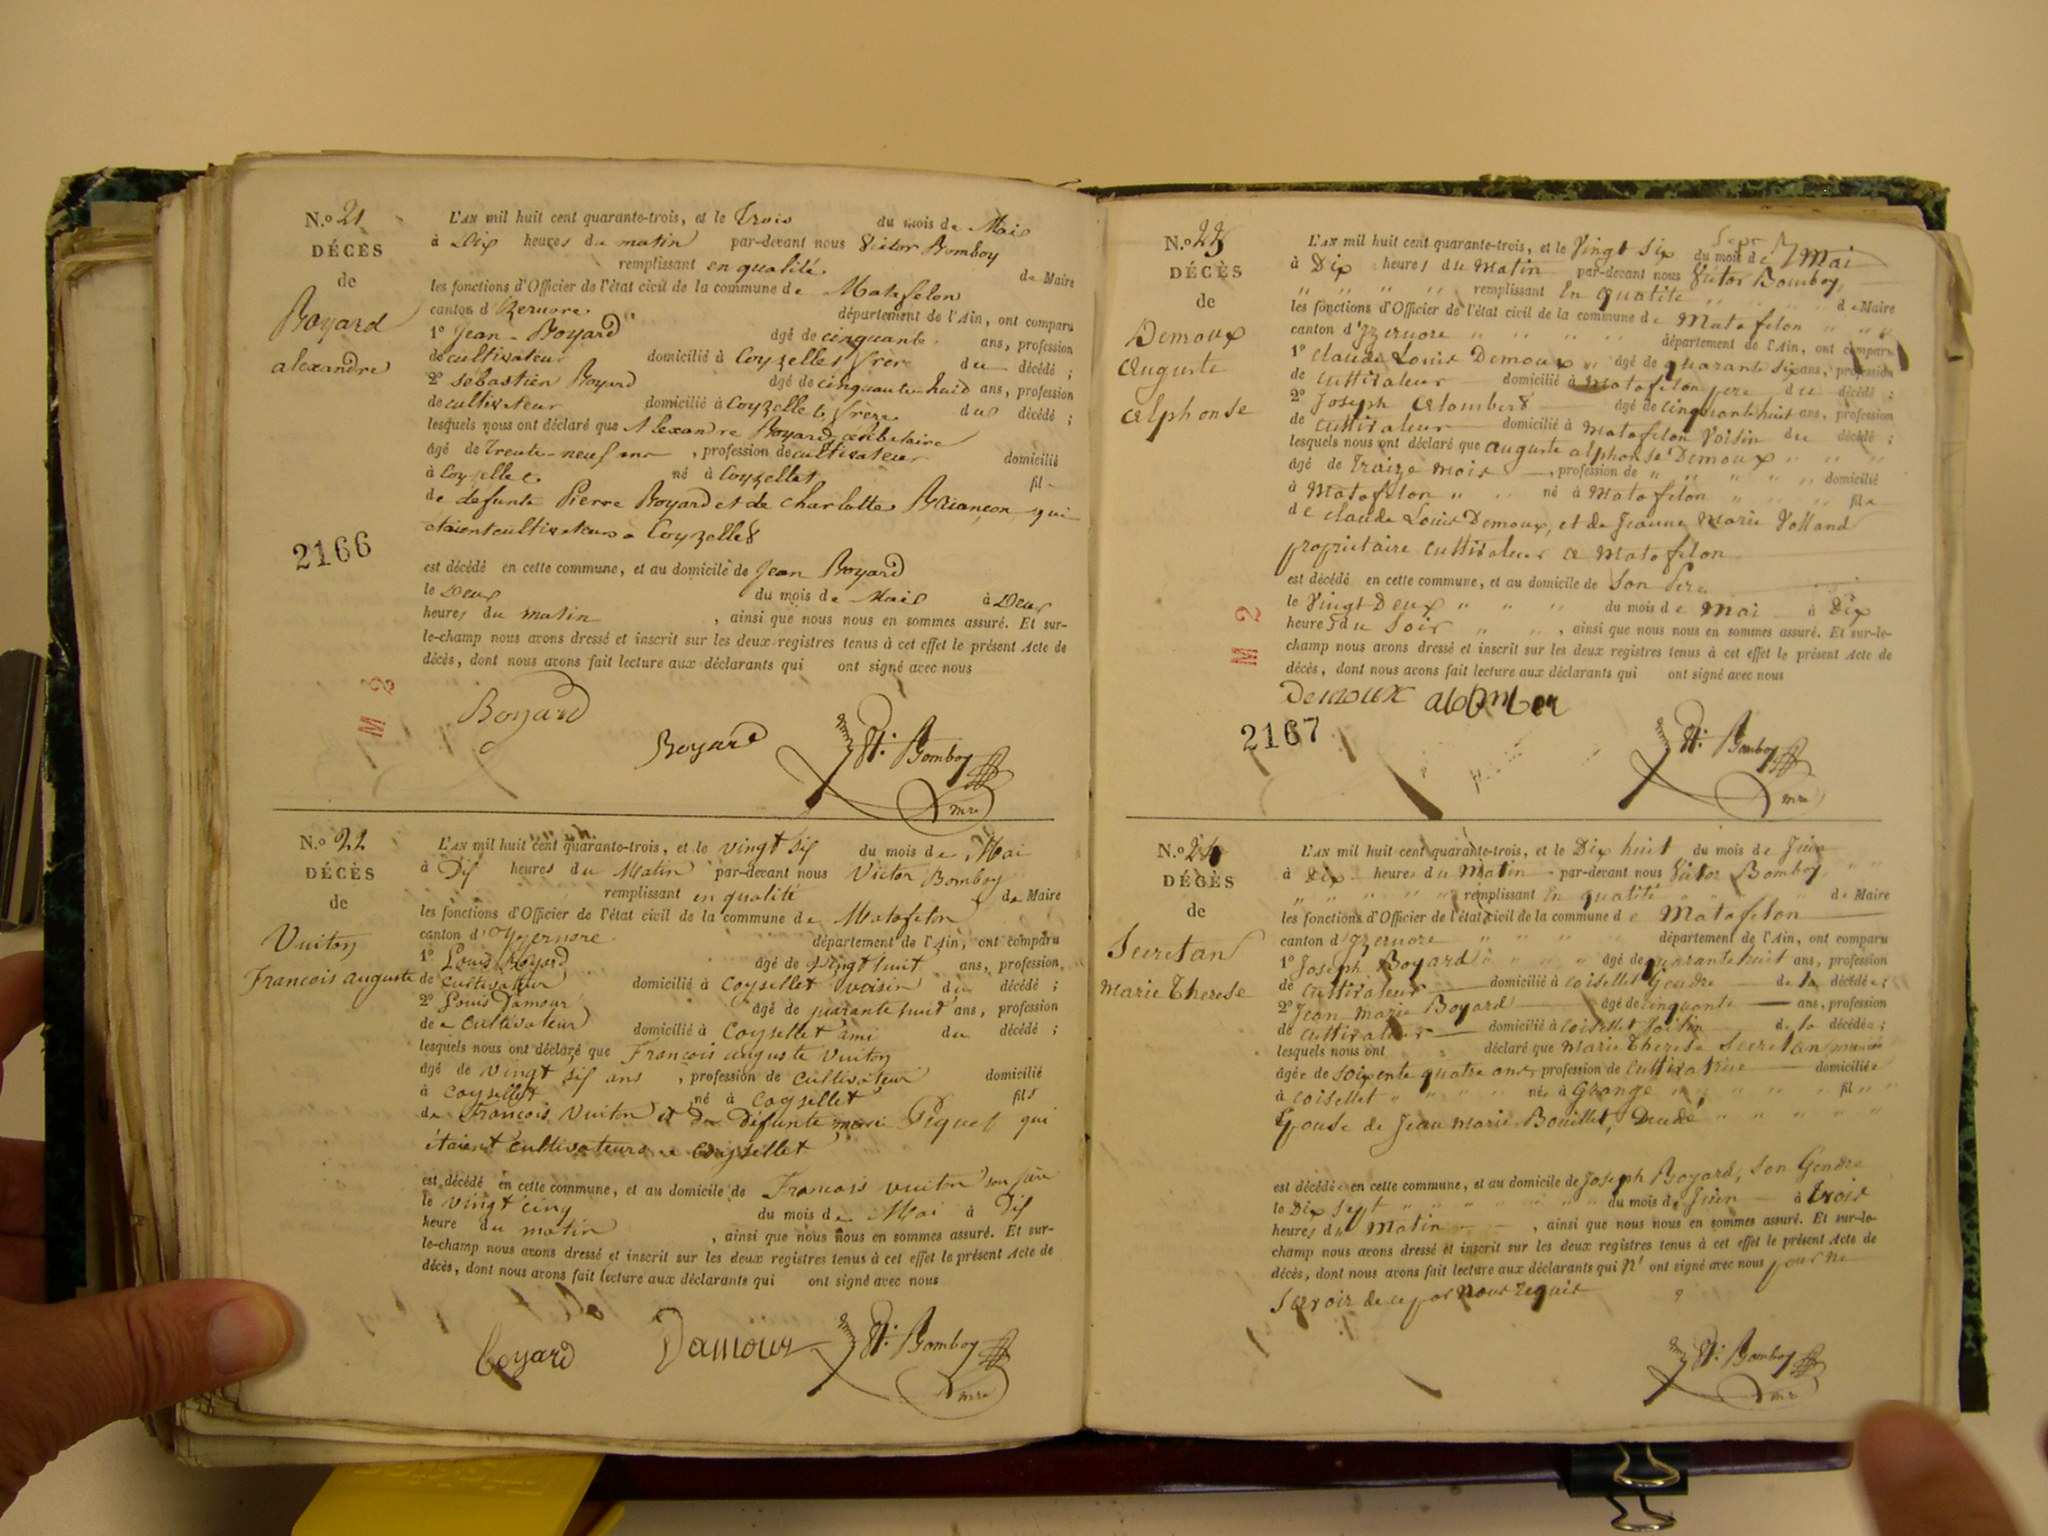 N.o 21
DÉCÈS
de
Boyard
alexandre
2166
L'AN mil huit cent quarante-trois, et le Trois du mois de Mais
à Dix heures du matin par-devant nous Victor Bomboy
remplissant en qualité de Maire
les fonctions d'Officier de l'état civil de la commune de Matafelon
canton d'Izernore département de l'Ain, ont comparu
1º Jean Boyard âgé de cinquante ans, profession
de cultivateur domicilié à Coyzellet frère du décédé ;
2º sebastien Boyard âgé de cinquante-huid ans, profession
de cultivateur domicilié à Coyzellet frere du décédé ;
lesquels nous ont déclaré que Alexandre Boyard célibataire
âgé de Trente-neuf ans , profession de cultivateur domicilié
à Coyzellet né à Coyzellet fil
de defunts Pierre Boyard et de Charlotte Briançon qui
étaient cultivateurs a Coyzellet
est décédé en cette commune, et au domicile de Jean Boyard
le Deux du mois de Mais à Deux
heures du matin , ainsi que nous nous en sommes assuré. Et sur-
le-champ nous avons dressé et inscrit sur les deux registres tenus à cet effet le présent Acte de
décès, dont nous avons fait lecture aux déclarants qui ont signé avec nous
M 2
Boyard
Boyard
Vt. Bomboy
mre
N.o 22
DÉCÈS
de
Vuiton
Francois auguste
L'AN mil huit cent quarante-trois, et le vingt six du mois de Mai
à Dix heures du Matin par-devant nous Victor Bomboy
remplissant en qualité de Maire
les fonctions d'Officier de l'état civil de la commune de Matafelon
canton d'Yzernore département de l'Ain, ont comparu
1º Louis Boyard âgé de vingt huit ans, profession
de cultivateur domicilié à Coysellet voisin du décédé ;
2º Louis Damour âgé de quarante huit ans, profession
de cultivateur domicilié à Coysellet ami du décédé ;
lesquels nous ont déclaré que Francois auguste Vuiton
âgé de vingt six ans , profession de cultivateur domicilié
à Coysellet né à Coysellet fils
de Francois Vuiton et de défunte marie Piquet qui
étaient cultivateurs a Coysellet
est décédé en cette commune, et au domicile de Francois vuiton son père
le vingt cinq du mois de Mai à Dix
heure du matin , ainsi que nous nous en sommes assuré. Et sur-
le-champ nous avons dressé et inscrit sur les deux registres tenus à cet effet le présent Acte de
décès, dont nous avons fait lecture aux déclarants qui ont signé avec nous
boyard
Damour
Vt. Bomboy
mre
N.o 23
DÉCÈS
de
Demoux
Auguste
Alphonse
M 2
2167
L'AN mil huit cent quarante-trois, et le Vingt Six du mois de Mai
à Dix heures du Matin par-devant nous Victor Bomboy
remplissant En qualité de Maire
les fonctions d'Officier de l'état civil de la commune de Matafelon
canton d'Izernore département de l'Ain, ont comparu
1º Claude Louis Demoux âgé de quarante six ans, profession
de Cultivateur domicilié à Matafelon pere du décédé ;
2º Joseph Alombert âgé de cinquante huit ans, profession
de Cultivateur domicilié à Matafelon Voisin du décédé ;
lesquels nous ont déclaré que auguste alphonse Demoux
âgé de Traize mois , profession de domicilié
à Matafelon né à Matafelon fils
de claude Louis Demoux, et de Jeanne Marie Volland
propriétaire cultivateur a Matafelon
est décédé en cette commune, et au domicile de Son Pere
le Vingt Deux du mois de Mai à Dix
heures du Soir , ainsi que nous nous en sommes assuré. Et sur-le-
champ nous avons dressé et inscrit sur les deux registres tenus à cet effet le présent Acte de
décès, dont nous avons fait lecture aux déclarants qui ont signé avec nous
Demoux alomber
Vt. Bomboy
mre
N.o 24
DÉCÈS
de
Secretan
Marie Therese
L'AN mil huit cent quarante-trois, et le Dix huit du mois de Juin
à Dix heures du Matin par-devant nous Victor Bomboy
remplissant En qualité de Maire
les fonctions d'Officier de l'état civil de la commune de Matafelon
canton d'Izernore département de l'Ain, ont comparu
1º Joseph Boyard âgé de quarante huit ans, profession
de Cultivateur domicilié à Coisellet Gendre de la décédée ;
2º Jean marie Boyard âgé de cinquante ans, profession
de Cultivateur domicilié à Coisellet Voisin de la décédée ;
lesquels nous ont déclaré que Marie Therese Secretan
âgée de soixante quatre ans profession de Cultivatrice domiciliée
à Coisellet née à Grange fil
Epouse de Jean Marie Bouillet,
est décédé en cette commune, et au domicile de Joseph Boyard, Son Gendre
le Dix Sept du mois de Juin à trois
heures du Matin , ainsi que nous nous en sommes assuré. Et sur-le-
champ nous avons dressé et inscrit sur les deux registres tenus à cet effet le présent Acte de
décès, dont nous avons fait lecture aux déclarants qui n' ont signé avec nous pour ne
Savoir de ce par nous requis
Vt. Bomboy
mre